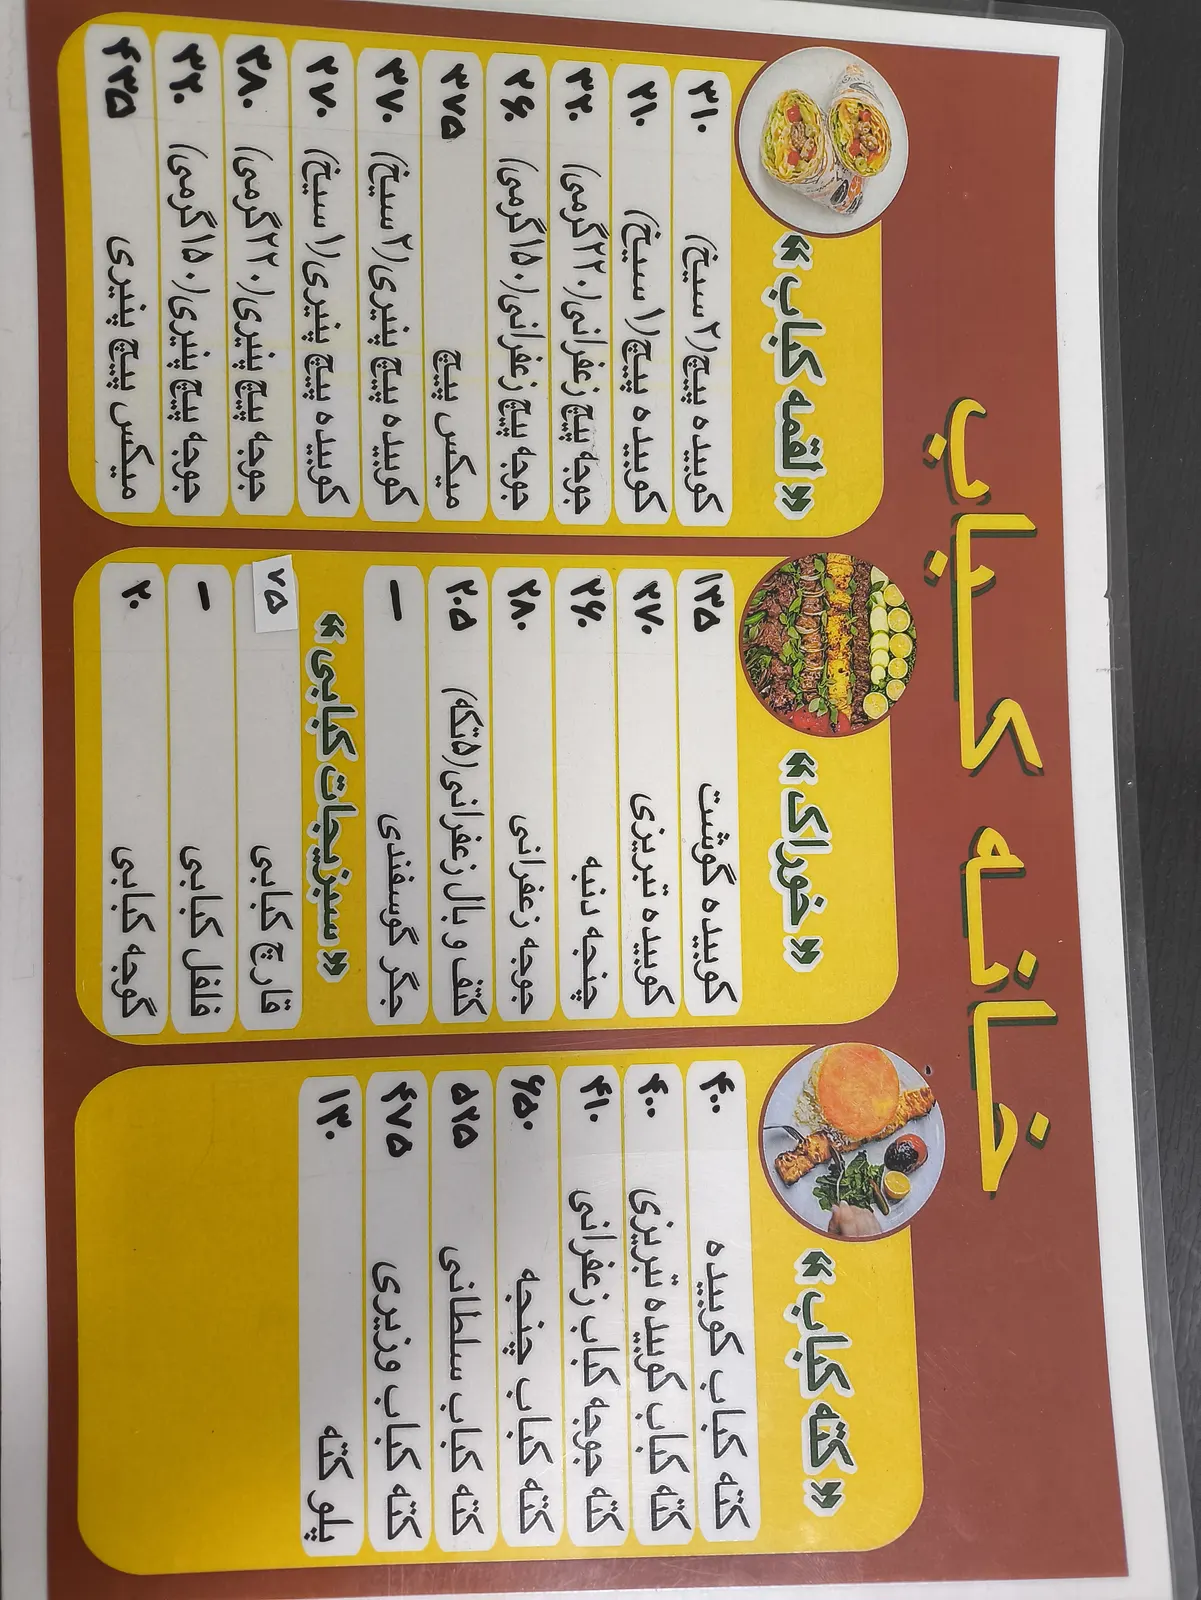 خانه کباب
«کته کباب»
کته کباب کوبیده ۴۰۰
کته کباب کوبیده تبریزی ۴۰۰
کته جوجه کباب زعفرانی ۴۱۰
کته کباب چنجه ۶۵۰
کته کباب سلطانی ۵۲۵
کته کباب وزیری ۴۷۵
پلو کته ۱۳۰
«خوراک»
کوبیده گوشت ۱۳۵
کوبیده تبریزی ۲۷۰
چنجه دنبه ۲۶۰
جوجه زعفرانی ۲۸۰
کتف و بال زعفرانی(۵تکه) ۲۰۵
جگر گوسفندی —
«سبزیجات کبابی»
قارچ کبابی ۷۵
فلفل کبابی —
گوجه کبابی ۲۰
«لقمه کباب»
کوبیده پیچ(۲ سیخ) ۳۱۰
کوبیده پیچ(۱ سیخ) ۲۱۰
جوجه پیچ زعفرانی(۲۲۰گرمی) ۳۲۰
جوجه پیچ زعفرانی(۱۵۰گرمی) ۲۶۰
میکس پیچ ۳۷۵
کوبیده پیچ پنیری(۲ سیخ) ۳۷۰
کوبیده پیچ پنیری(۱ سیخ) ۲۷۰
جوجه پیچ پنیری(۲۲۰گرمی) ۳۸۰
جوجه پیچ پنیری(۱۵۰گرمی) ۳۲۰
میکس پیچ پنیری ۴۳۵